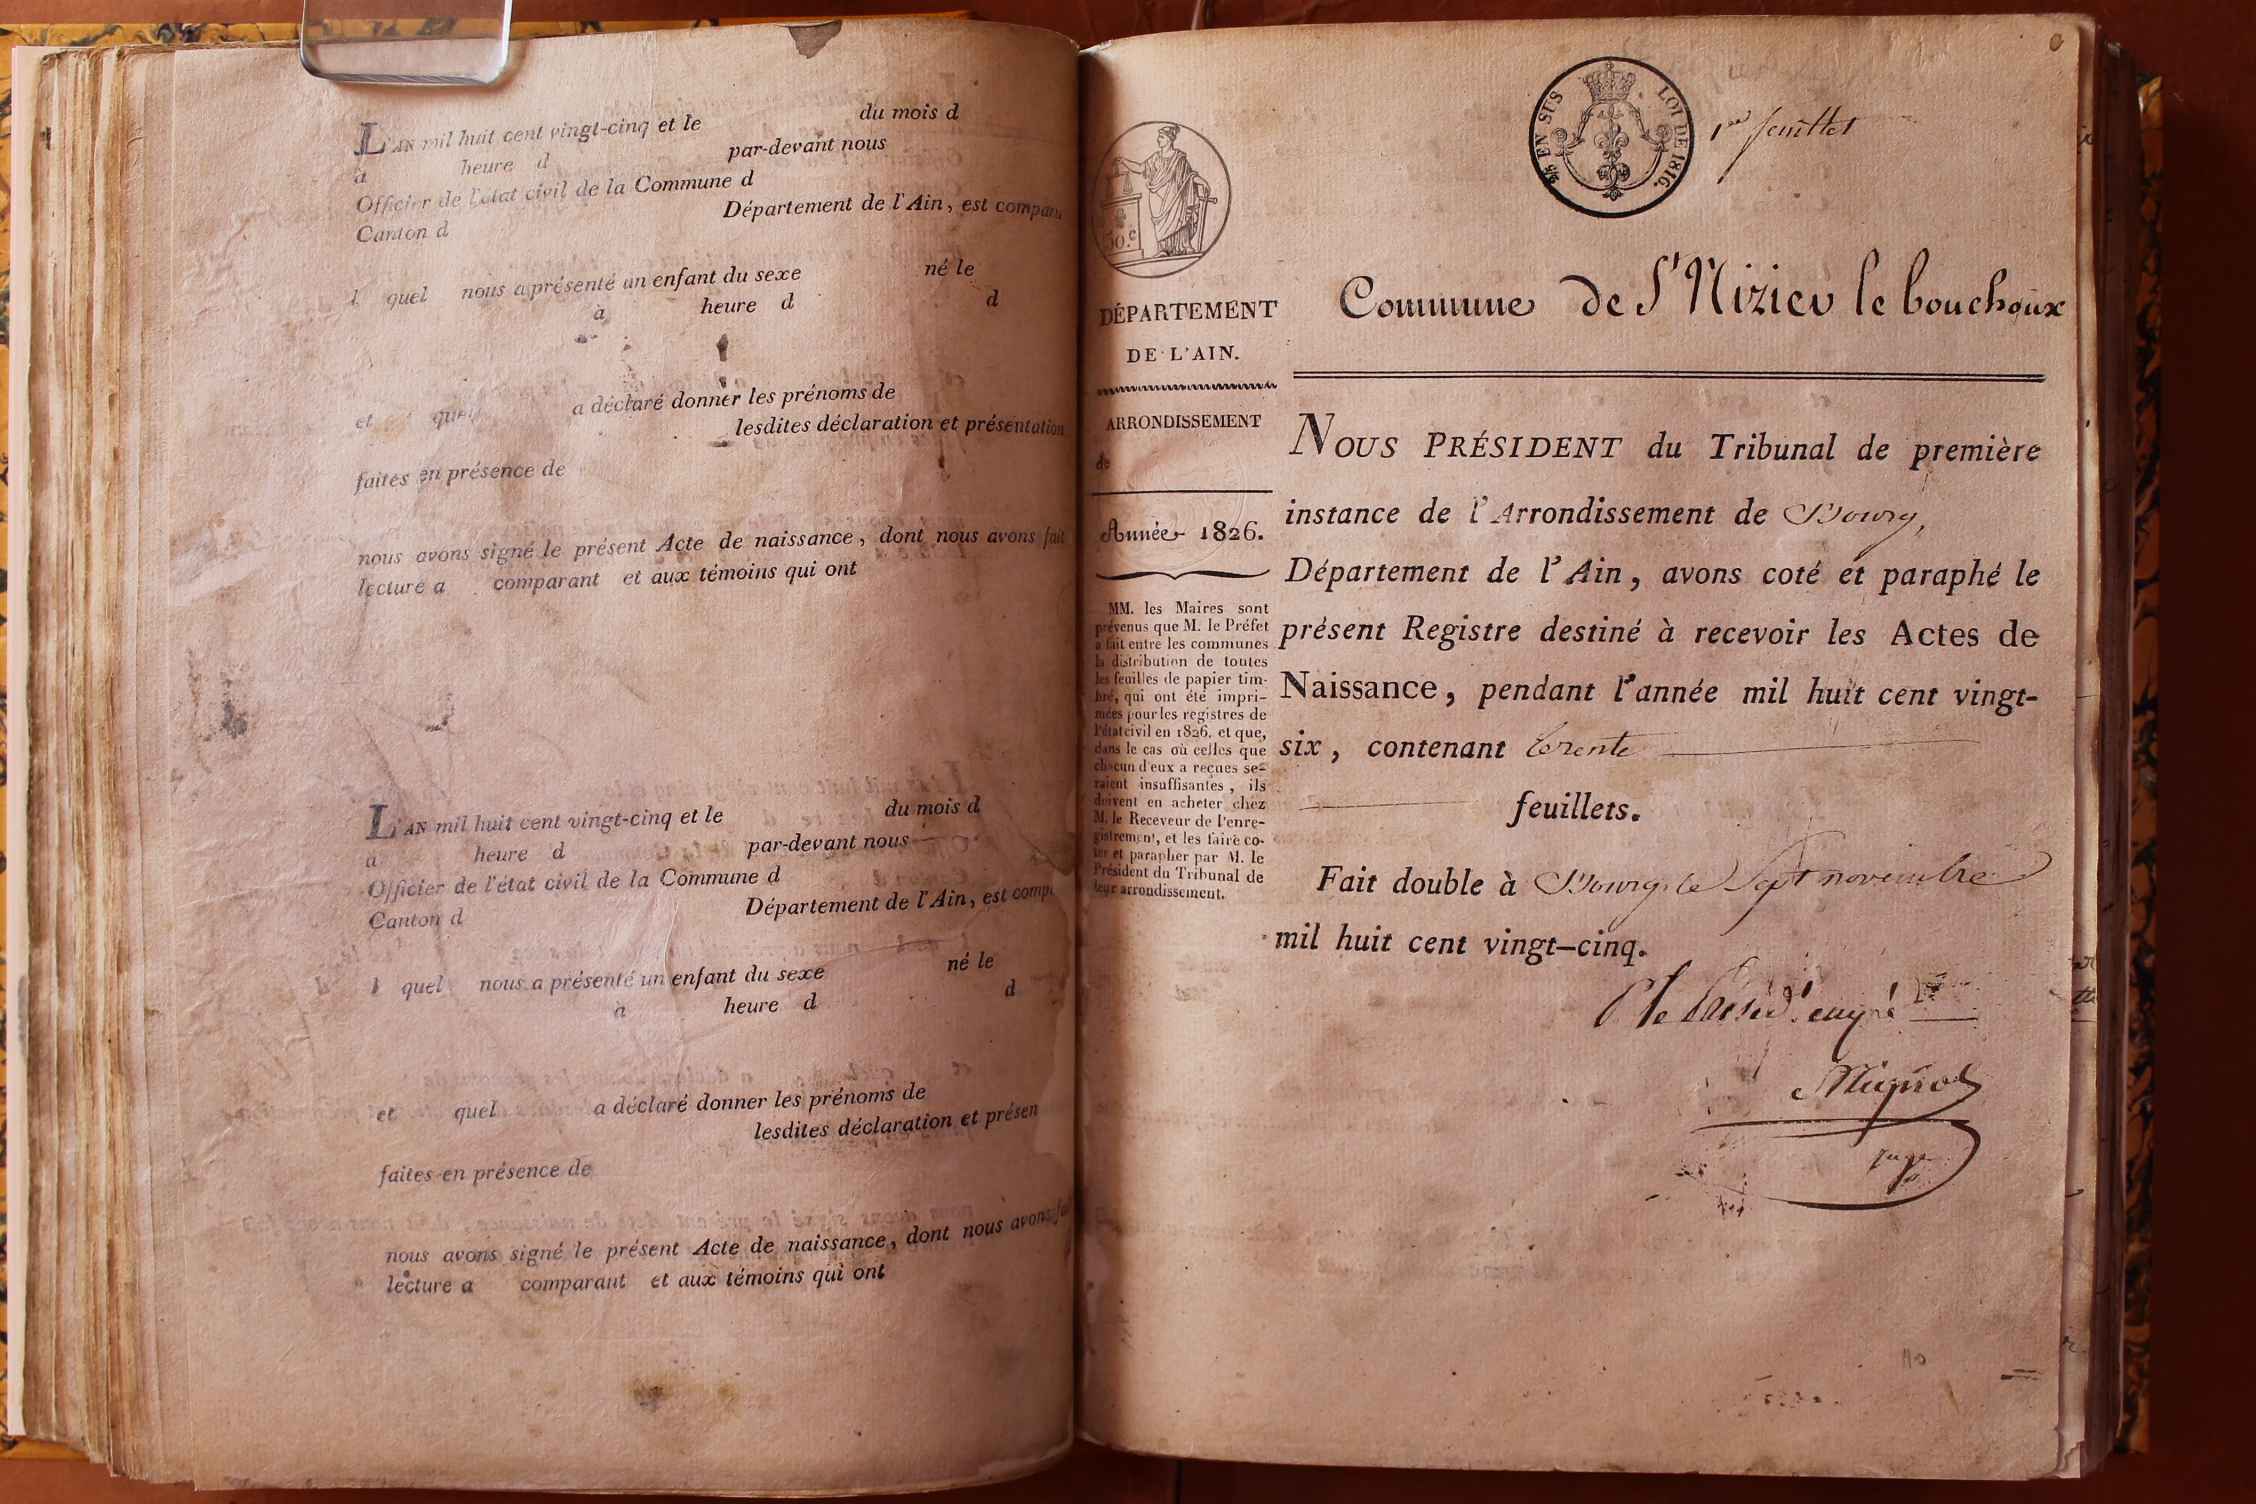 L'AN mil huit cent vingt-cinq et le du mois d
à heure d par-devant nous
Officier de l'état civil de la Commune d
Canton d Département de l'Ain, est comparu
l quel nous a présenté un enfant du sexe né le
à heure d d
et quel a déclaré donner les prénoms de
lesdites déclaration et présentation
faites en présence de
nous avons signé le présent Acte de naissance, dont nous avons fait
lecture a comparant et aux témoins qui ont
L'AN mil huit cent vingt-cinq et le du mois d
à heure d par-devant nous
Officier de l'état civil de la Commune d
Canton d Département de l'Ain, est comp
l quel nous a présenté un enfant du sexe né le
à heure d d
et quel a déclaré donner les prénoms de
lesdites déclaration et présen
faites en présence de
nous avons signé le présent Acte de naissance, dont nous avons fa
lecture a comparant et aux témoins qui ont
EN SUS LOI DE 1816.
1er feuillet
50.c
DÉPARTEMENT
DE L'AIN.
ARRONDISSEMENT
de
Année 1826.
MM. les Maires sont
prévenus que M. le Préfet
a fait entre les communes
la distribution de toutes
les feuilles de papier tim-
bré, qui ont été impri-
mées pour les registres de
l'état civil en 1826. et que,
dans le cas où celles que
chacun d'eux a reçues se-
raient insuffisantes, ils
doivent en acheter chez
M. le Receveur de l'enre-
gistrement, et les faire co-
ter et parapher par M. le
Président du Tribunal de
leur arrondissement.
Commune de St Nizier le bouchoux
NOUS PRÉSIDENT du Tribunal de première
instance de l'Arrondissement de Bourg,
Département de l'Ain, avons coté et paraphé le
présent Registre destiné à recevoir les Actes de
Naissance, pendant l'année mil huit cent vingt-
six, contenant trente
feuillets.
Fait double à Bourg le Sept novembre
mil huit cent vingt-cinq.
P. le Présid.t
juge